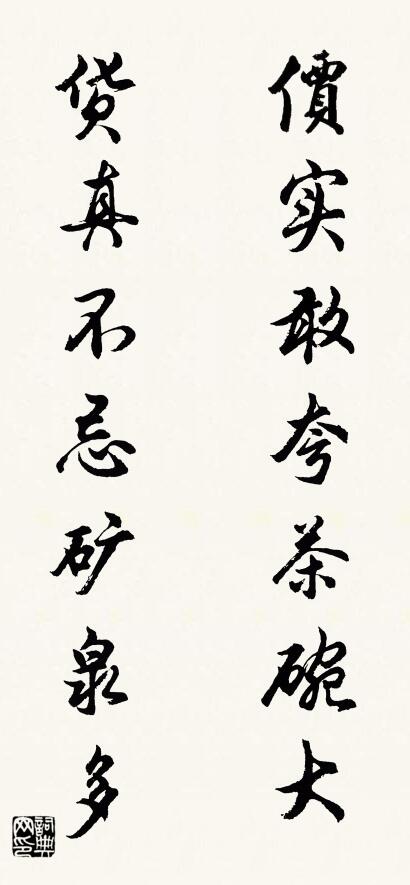 價实敢夸茶碗大
货真不忌矿泉多
詞典网印